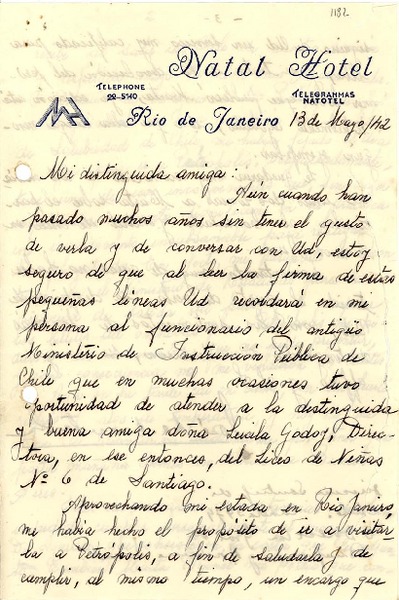 1182
Natal Hotel
TELEPHONE
22-5140
TELEGRAMMAS
NATOTEL
Rio de Janeiro 13 de Mayo/42
Mi distinguida amiga:
Aún cuando han
pasado muchos años sin tener el gusto
de verla y de conversar con Ud, estoy
seguro de que al leer la firma de estas
pequeñas líneas Ud recordará en mi
persona al funcionario del antigüo
Ministerio de Instrucción Pública de
Chile que en muchas ocasiones tuvo
oportunidad de atender a la distinguida
y buena amiga doña Lucila Godoy, Direc-
tora, en ese entonces, del Liceo de Niñas
Nº 6 de Santiago.
Aprovechando mi estada en Rio Janeiro,
me había hecho el propósito de ir a visitar-
la a Petrópolis, a fin de saludarla y de
cumplir, al mismo tiempo, un encargo que